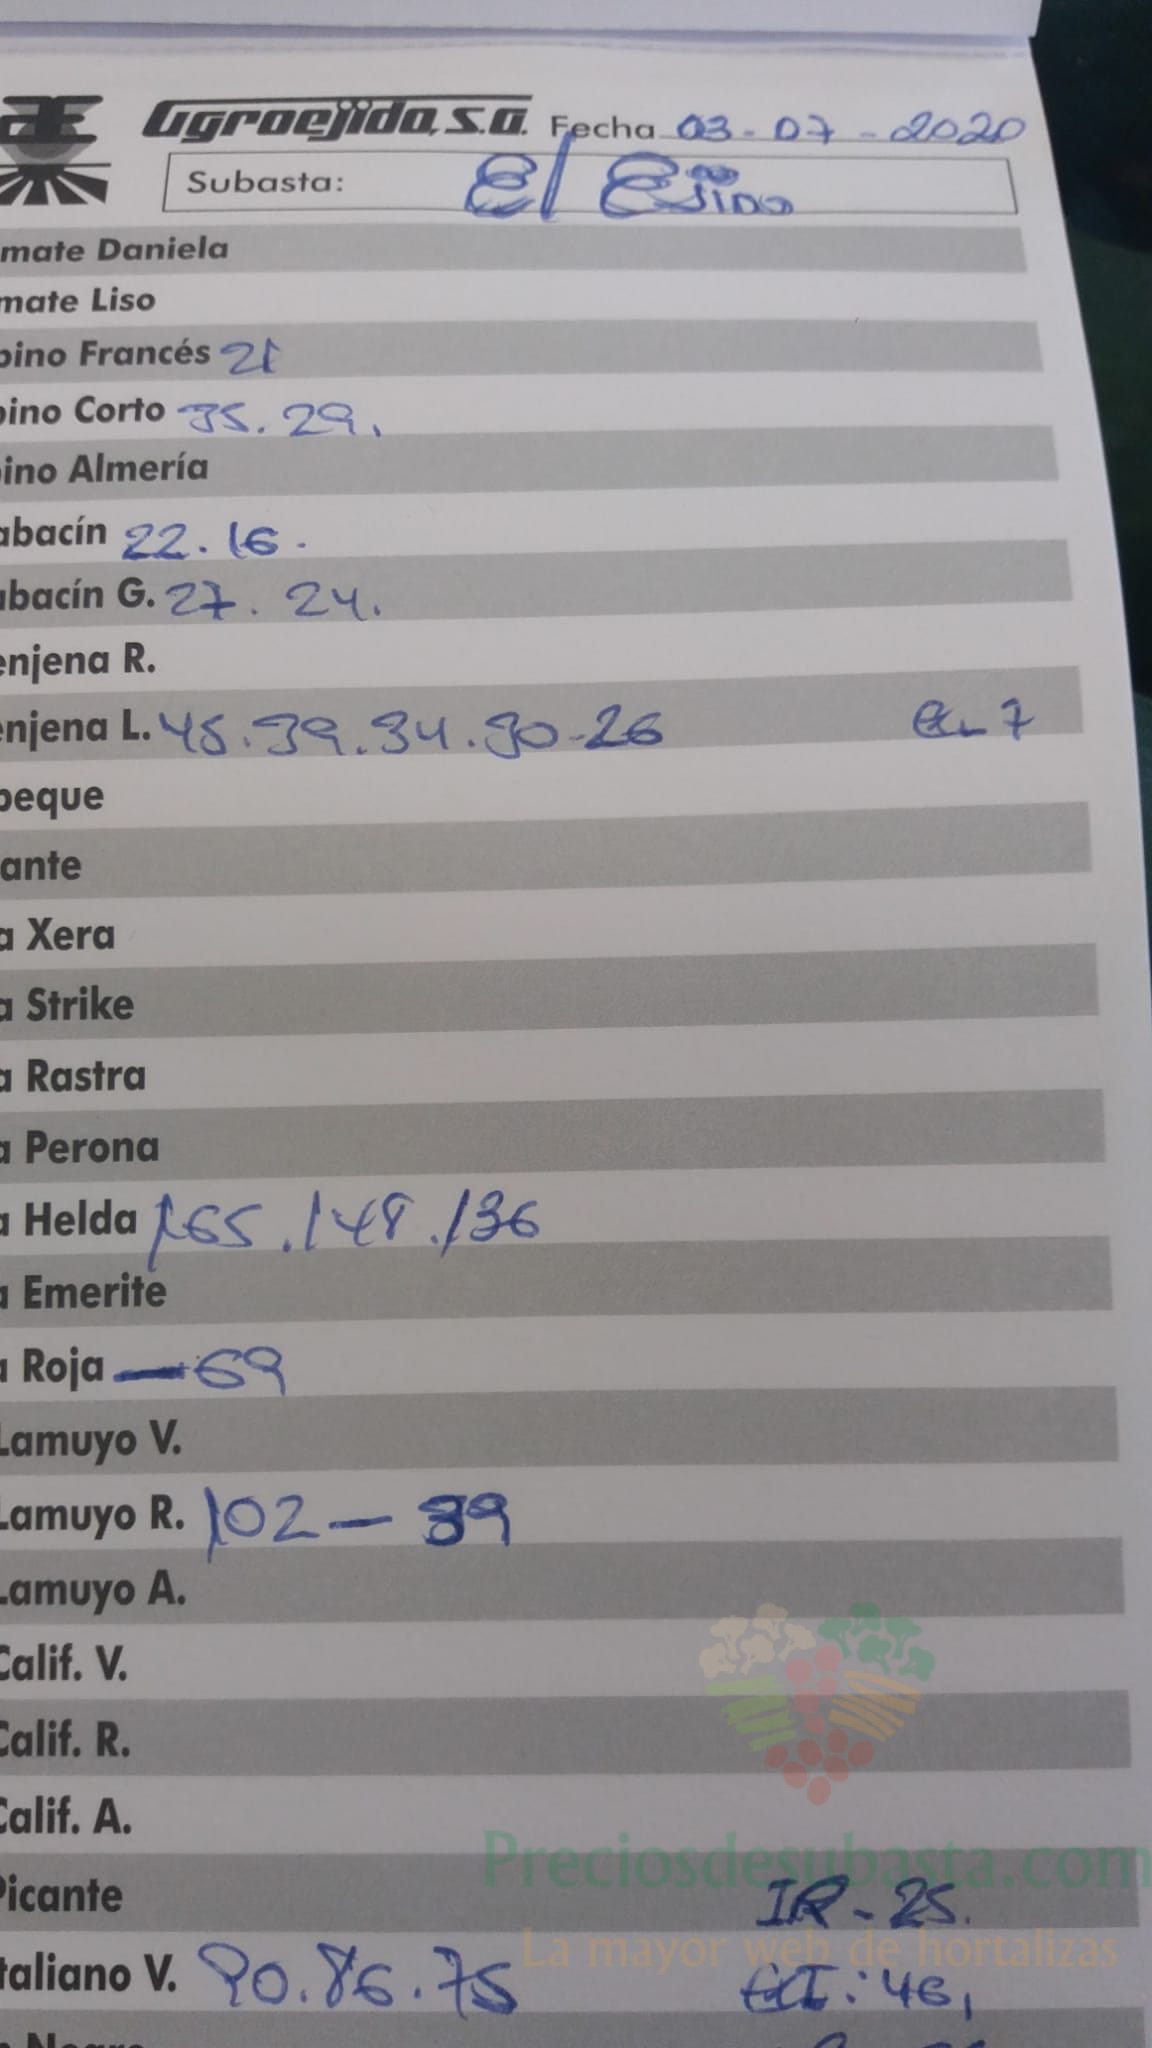 Agroejido, S.A. Fecha 03-07-2020
Subasta: El Ejido
mate Daniela
mate Liso
pino Francés 21
pino Corto 35. 29.
pino Almería
abacín 22. 16.
abacín G. 27. 24.
enjena R.
enjena L. 45. 39. 34. 30-26
peque
ante
a Xera
a Strike
a Rastra
a Perona
a Helda 165. 148. 136
a Emerite
a Roja — 69
Lamuyo V.
Lamuyo R. 102 — 39
Lamuyo A.
Calif. V.
Calif. R.
Calif. A.
Preciosdesubasta.com
Picante IR - 25.
La mayor web de hortalizas
Italiano V. 90. 86. 75